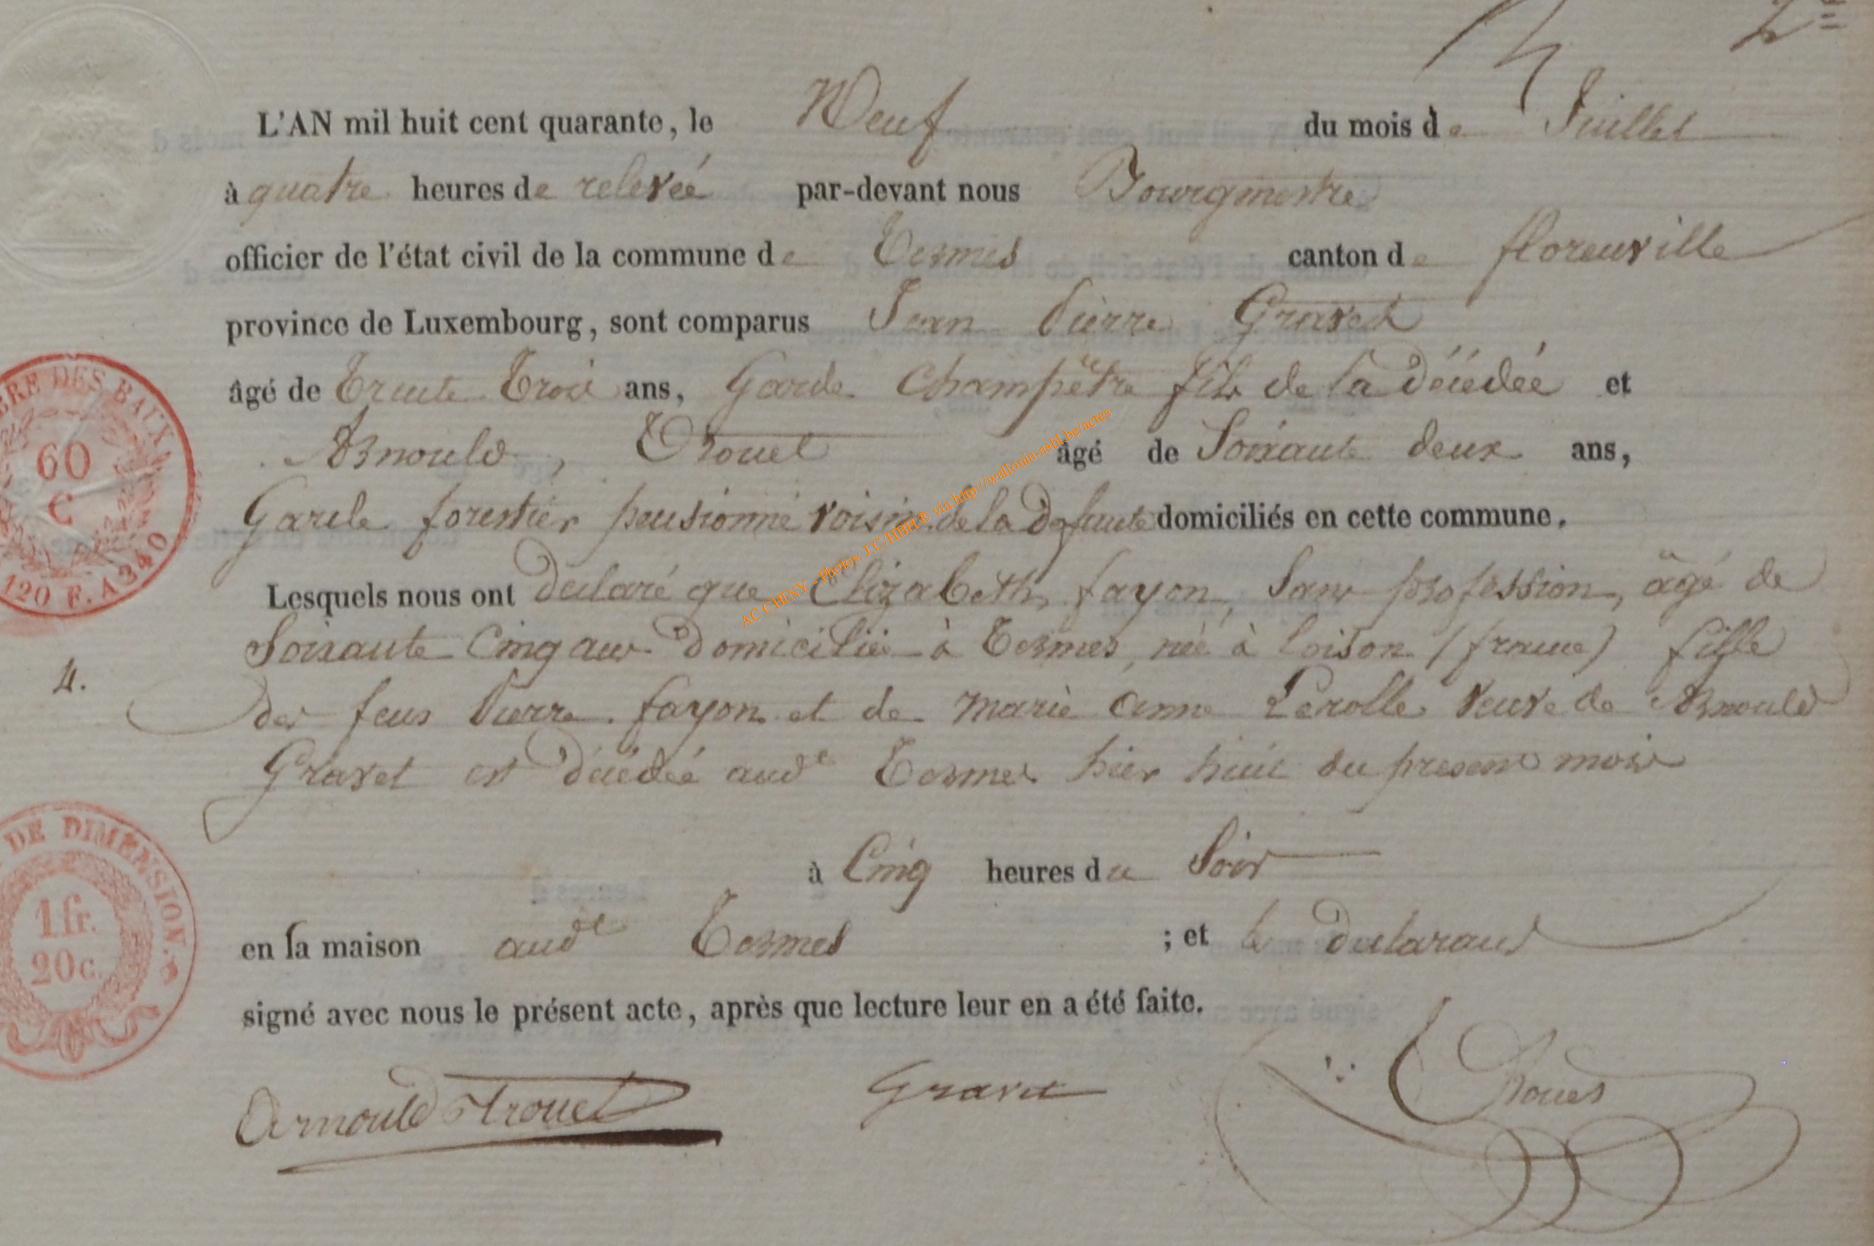 2e
L'AN mil huit cent quarante, le Neuf du mois de Juillet
à quatre heures de reléveé par-devant nous Bourgmestre
officier de l'état civil de la commune de Termes canton de florenville
province de Luxembourg, sont comparus Jean Pierre Gravet
âgé de Trente Trois ans, Garde Champêtre fils de la Décédéé et
Arnould, Trouet âgé de Soixante deux ans,
Garde forestier pensionné voisin de la Defunte domiciliés en cette commune.
Lesquels nous ont declaré que Elizabeth fayon, Sans profession, âgé de
Soixante Cinq ans Domiciliée à Termes, née à loison (france) fille
des feus Pierre fayon et de marie anne Lerolle veuve de Arnould
Gravet est décédée audt Termes hier huit du present mois
4.
à Cinq heures du Soir
en sa maison audt Termes ; et le declarans
signé avec nous le présent acte, après que lecture leur en a été faite.
Arnould trouet Gravet
TIMBRE DES BAUX
60
C
120 F. A 240
DE DIMENSION.
1 fr.
20 c.
AC CHINY - Photos J.C. HIBLE via http://wallonia.asbl.be/actes